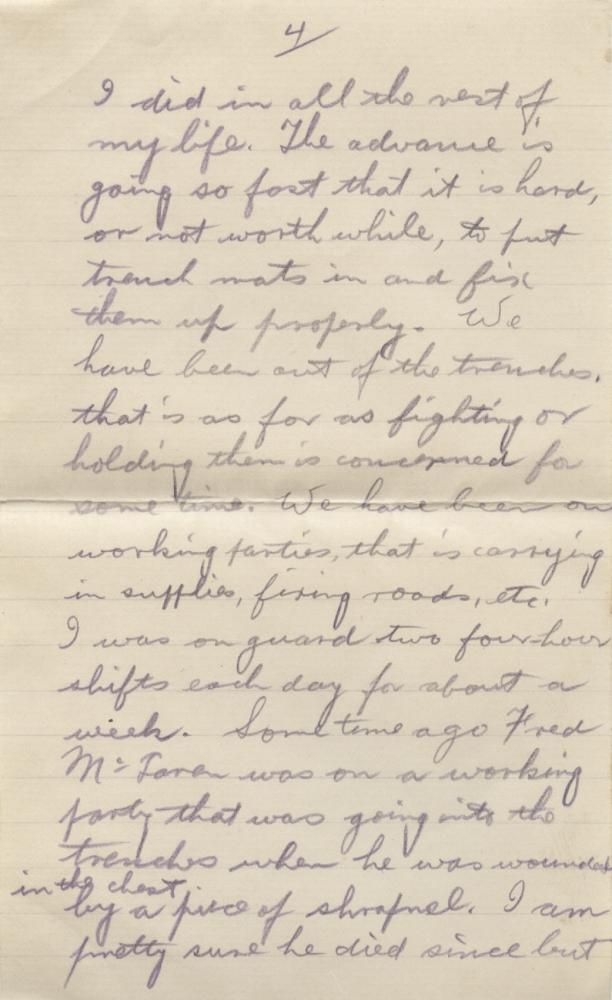 4
I did in all the rest of
my life. The advance is
going so fast that it is hard,
or not worth while, to put
trench mats in and fix
them up properly. We
have been out of the trenches,
that is as far as fighting or
holding them is concerned for
some time. We have been on
working parties, that is carrying
in supplies, fixing roads, etc.
I was on guard two four-hour
shifts each day for about a
week. Some time ago Fred
was on a working
party that was going into the
trenches when he was wounded
in the chest
by a piece of shrapnel. I am
pretty sure he died since but